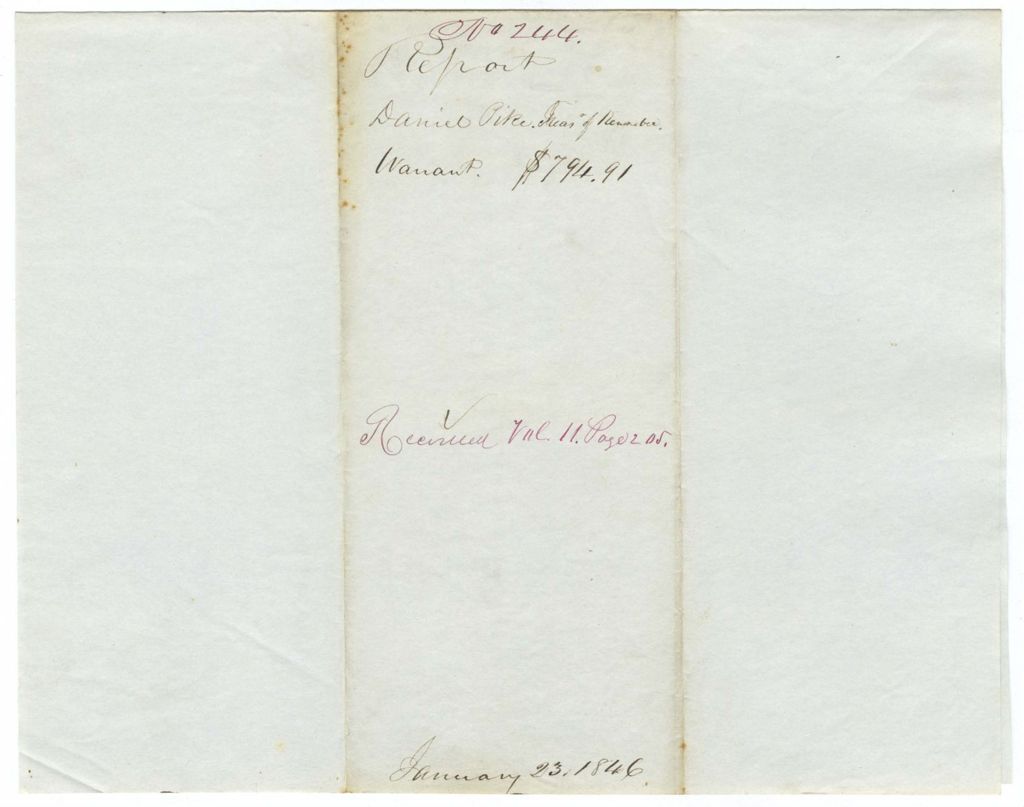 No 244.
Report
Daniel Pike. Treasr of Kennebec.
Warrant. $794.91
Received Vol. 11. Page 205.
January 23, 1846.